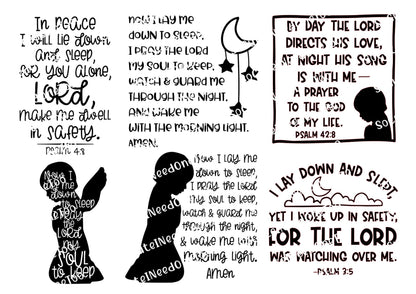 In Peace
I will lie down
and sleep,
for you alone,
LORD,
make me dwell
in safety.
PSALM 4:8
NOW I LAY ME
DOWN TO SLEEP,
I PRAY THE LORD
MY SOUL TO KEEP.
WATCH & GUARD ME
THROUGH THE NIGHT,
AND WAKE ME
WITH THE MORNING LIGHT.
AMEN.
BY DAY THE LORD
DIRECTS HIS LOVE,
AT NIGHT HIS SONG
IS WITH ME—
A PRAYER
TO THE GOD
OF MY LIFE.
PSALM 42:8
SO
Now I
lay me
down
to sleep
I pray
the
Lord
my
SOUL
to keep
NeedOn
telNeedO
Now I lay me
down to sleep,
I pray the Lord
my soul to keep,
watch & guard me
through the night,
& wake me with
morning light.
Amen
I LAY DOWN AND SLEPT,
YET I WOKE UP IN SAFETY,
FOR THE LORD
WAS WATCHING OVER ME.
~PSALM 3:5